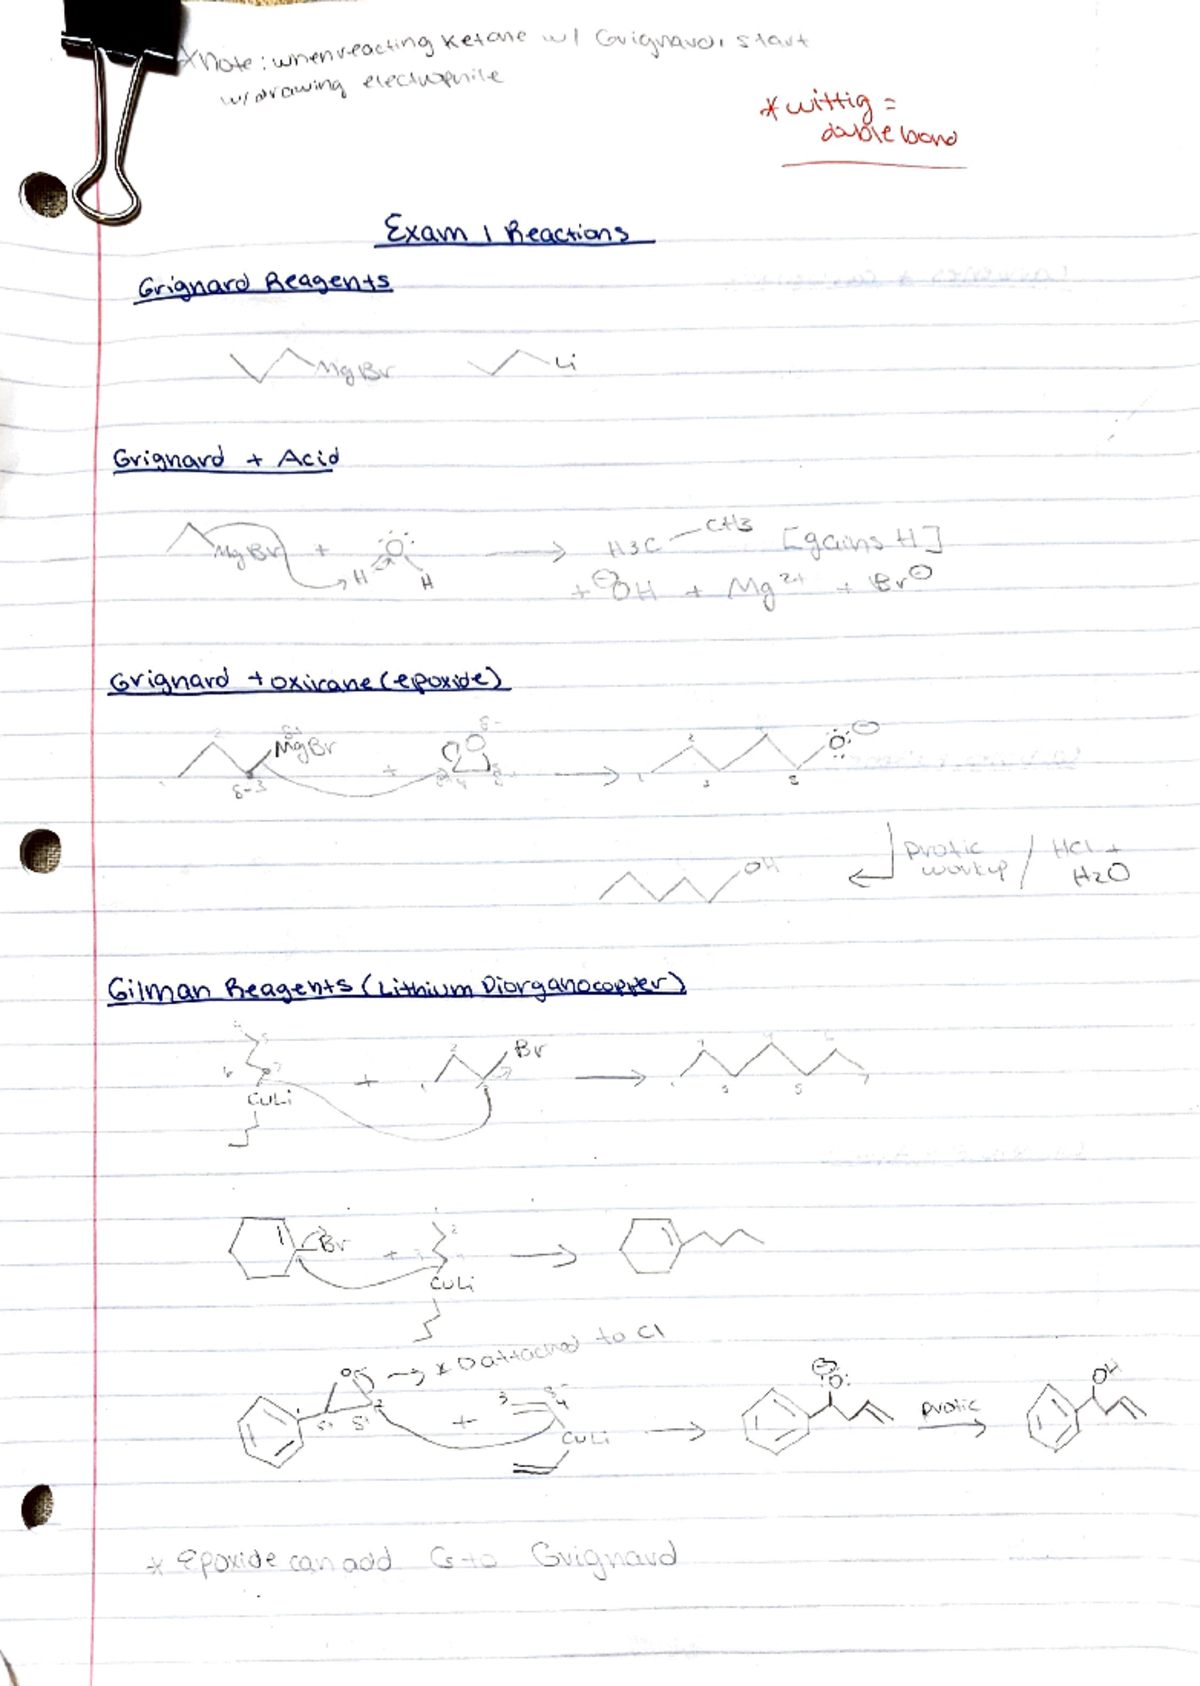 *Note: when reacting Ketone w/ Grignard, start
w/ drawing electrophile
* wittig =
double bond
Exam 1 Reactions
Grignard Reagents
MgBr
Li
Grignard + Acid
MgBr + H O H → H3C CH3 [gains H]
+ ⊖OH + Mg2+ + Br⊖
Grignard + oxirane (epoxide)
2 δ+ MgBr δ-3 + O δ- 4 → 1 2 3 4 5 O ⊖
protic workup / HCl + H2O
OH
Gilman Reagents (Lithium Diorganocopper)
CuLi + 1 2 3 Br → 1 2 3 4 5 6 7
Br + CuLi →
O → * O attached to C1
δ+ δ+ 2 + 3 δ- 4 CuLi → ⊖ O protic → OH
* Epoxide can add Cs to Grignard